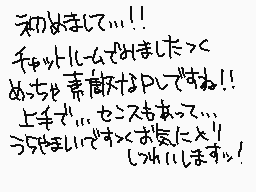 初めまして…!!
チャットルームでみましたっく
めっちゃ素敵なPLですね!!
上手で… センスもあって…
うらやまいですっくお気にとり
しつれいしますッ!